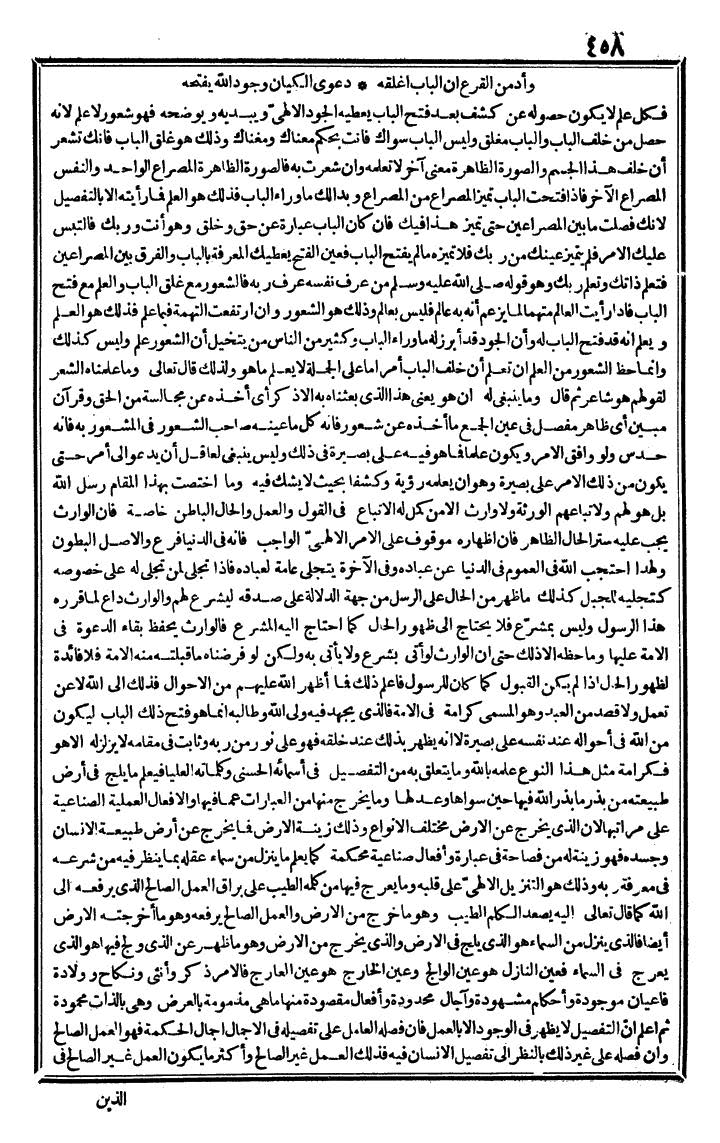 ٤٥٨
وأدمن القرع ان الباب اغلقه * دعوى الكيان وجود الله يفتحه
فكل علم لا يكون حصوله عن كشف بعد فتح الباب يعطيه الجود الالهىّ ويبديه ويوضحه فهو شعور لا علم لانه
حصل من خلف الباب والباب مغلق وليس الباب سواك فانت بحكم معناك ومغناك وذلك هو غلق الباب فانك تشعر
أن خلف هذا الجسم والصورة الظاهرة معنى آخر لا تعلمه وان شعرت به فالصورة الظاهرة المصراع الواحد والنفس
المصراع الآخر فاذا فتحت الباب تميز المصراع من المصراع وبدا لك ما وراء الباب فذلك هو العلم فما رأيته الا بالتفصيل
لانك فصلت ما بين المصراعين حتى تميز هذا فيك فان كان الباب عبارة عن حق وخلق وهو أنت وربك فالتبس
عليك الامر فلم يتميز عينك من ربك فلا تميزه ما لم يفتح الباب فعين الفتح يعطيك المعرفة بالباب والفرق بين المصراعين
فتعلم ذاتك وتعلم ربك وهو قوله صلى الله عليه وسلم من عرف نفسه عرف ربه فالشعور مع غلق الباب والعلم مع فتح
الباب فاذا رأيت العالم متهما لما يزعم أنه به عالم فليس بعالم وذلك هو الشعور وان ارتفعت التهمة فيما علم فذلك هو العلم
ويعلم انه قد فتح الباب له وأن الجود قد أبرز له ما وراء الباب وكثير من الناس من يتخيل أن الشعور علم وليس كذلك
وانما حظ الشعور من العلم ان تعلم أن خلف الباب أمر اما على الجملة لا يعلم ما هو ولذلك قال تعالى وما علمناه الشعر
لقولهم هو شاعر ثم قال وما ينبغى له ان هو يعنى هذا الذى بعثناه به الا ذكر أى أخذه من مجالسة من الحق وقرآن
مبين أى ظاهر مفصل فى عين الجمع ما أخذه عن شعور فانه كل ما عينه صاحب الشعور فى المشعور به فانه
حدس ولو وافق الامر ويكون علما فما هو فيه على بصيرة فى ذلك وليس ينبغى لعاقل أن يدعو الى أمر حتى
يكون من ذلك الامر على بصيرة وهو ان يعلمه رؤية وكشفا بحيث لا يشك فيه وما اختصت بهذا المقام رسل الله
بل هو لهم ولاتباعهم الورثة ولا وارث الا من كمل له الاتباع فى القول والعمل والحال الباطن خاصة فان الوارث
يجب عليه ستر الحال الظاهر فان اظهاره موقوف على الامر الالهىّ الواجب فانه فى الدنيا فرع والاصل البطون
ولهذا احتجب الله فى العموم فى الدنيا عن عباده وفى الآخرة يتجلى عامة لعباده فاذا تجلى لمن تجلى له على خصوصه
كتجليه للجبل كذلك ما ظهر من الحال على الرسل من جهة الدلالة على صدقه ليشرع لهم والوارث داع لما قرره
هذا الرسول وليس بمشرّع فلا يحتاج الى ظهور الحال كما احتاج اليه المشرع فالوارث يحفظ بقاء الدعوة فى
الامة عليها وما حظه الا ذلك حتى ان الوارث لو أتى بشرع ولا يأتى به ولكن لو فرضناه ما قبلته منه الامة فلا فائدة
لظهور الحال اذا لم يكن القبول كما كان للرسول فاعلم ذلك فما أظهر الله عليهم من الاحوال فذلك الى الله لا عن
تعمل ولا قصد من العبد وهو المسمى كرامة فى الامة فالذى يجهد فيه ولى الله وطالبه انما هو فتح ذلك الباب ليكون
من الله فى أحواله عند نفسه على بصيرة لا انه يظهر بذلك عند خلقه فهو على نور من ربه وثابت فى مقامه لا يزلزله الا هو
فكرامة مثل هذا النوع علمه بالله وما يتعلق به من التفصيل فى أسمائه الحسنى وكلماته العليا فيعلم ما يلج فى أرض
طبيعته من بذر ما بذر الله فيها حين سواها وعدلها وما يخرج منها من العبارات عما فيها والافعال العملية الصناعية
على مراتبها لان الذى يخرج عن الارض مختلف الانواع وذلك زينة الارض فما يخرج عن أرض طبيعة الانسان
وجسده فهو زينة له من فصاحة فى عبارة وأفعال صناعية محكمة كما يعلم ما ينزل من سماء عقله بما ينظر فيه من شرعه
فى معرفة ربه وذلك هو التنزيل الالهىّ على قلبه وما يعرج فيها من كلمه الطيب على براق العمل الصالح الذى يرفعه الى
الله كما قال تعالى اليه يصعد الكلم الطيب وهو ما خرج من الارض والعمل الصالح يرفعه وهو ما أخرجته الارض
أيضا فالذى ينزل من السماء هو الذى يلج فى الارض والذى يخرج من الارض وهو ما ظهر عن الذى ولج فيها هو الذى
يعرج فى السماء فعين النازل هو عين الوالج وعين الخارج هو عين العارج فالامر ذكر وأنثى ونكاح وولادة
فاعيان موجودة وأحكام مشهودة وآجال محدودة وأفعال مقصودة منها ما هى مذمومة بالعرض وهى بالذات محمودة
ثم اعلم انّ التفصيل لا يظهر فى الوجود الا بالعمل فان فصله العامل على تفصيله فى الاجمال اجمال الحكمة فهو العمل الصالح
وان فصله على غير ذلك بالنظر الى تفصيل الانسان فيه فذلك العمل غير الصالح وأكثر ما يكون العمل غير الصالح فى
الذين